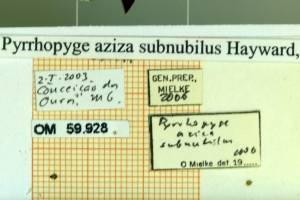 Pyrrhopyge aziza subnubilus Hayward,
2-I-2003
Conceição do
Ouro, MG
GEN. PREP.
MIELKE
2006
OM 59.928
Pyrrhopyge
aziza
subnubilus
2006
O Mielke det. 19.....